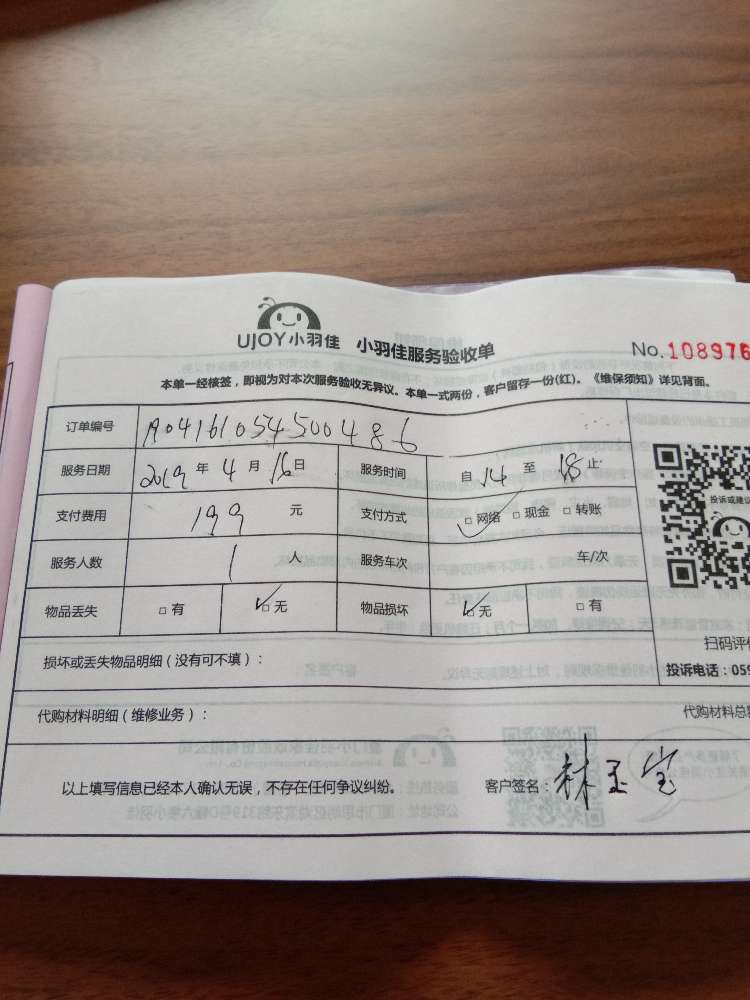 UJOY小羽佳 小羽佳服务验收单 No.108976
本单一经核签，即视为对本次服务验收无异议。本单一式两份，客户留存一份(红)。《维保须知》详见背面。
订单编号 A04161054500486
服务日期 2019 年 4 月 16 日 服务时间 自 14 至 18 止
支付费用 199 元 支付方式 □网络 □现金 □转账
投诉或建议
服务人数 1 人 服务车次 车/次
物品丢失 □有 □无 物品损坏 □无 □有
扫码评价
损坏或丢失物品明细（没有可不填）： 投诉电话：059
代购材料明细（维修业务）： 代购材料总
以上填写信息已经本人确认无误，不存在任何争议纠纷。 客户签名：林玉宝